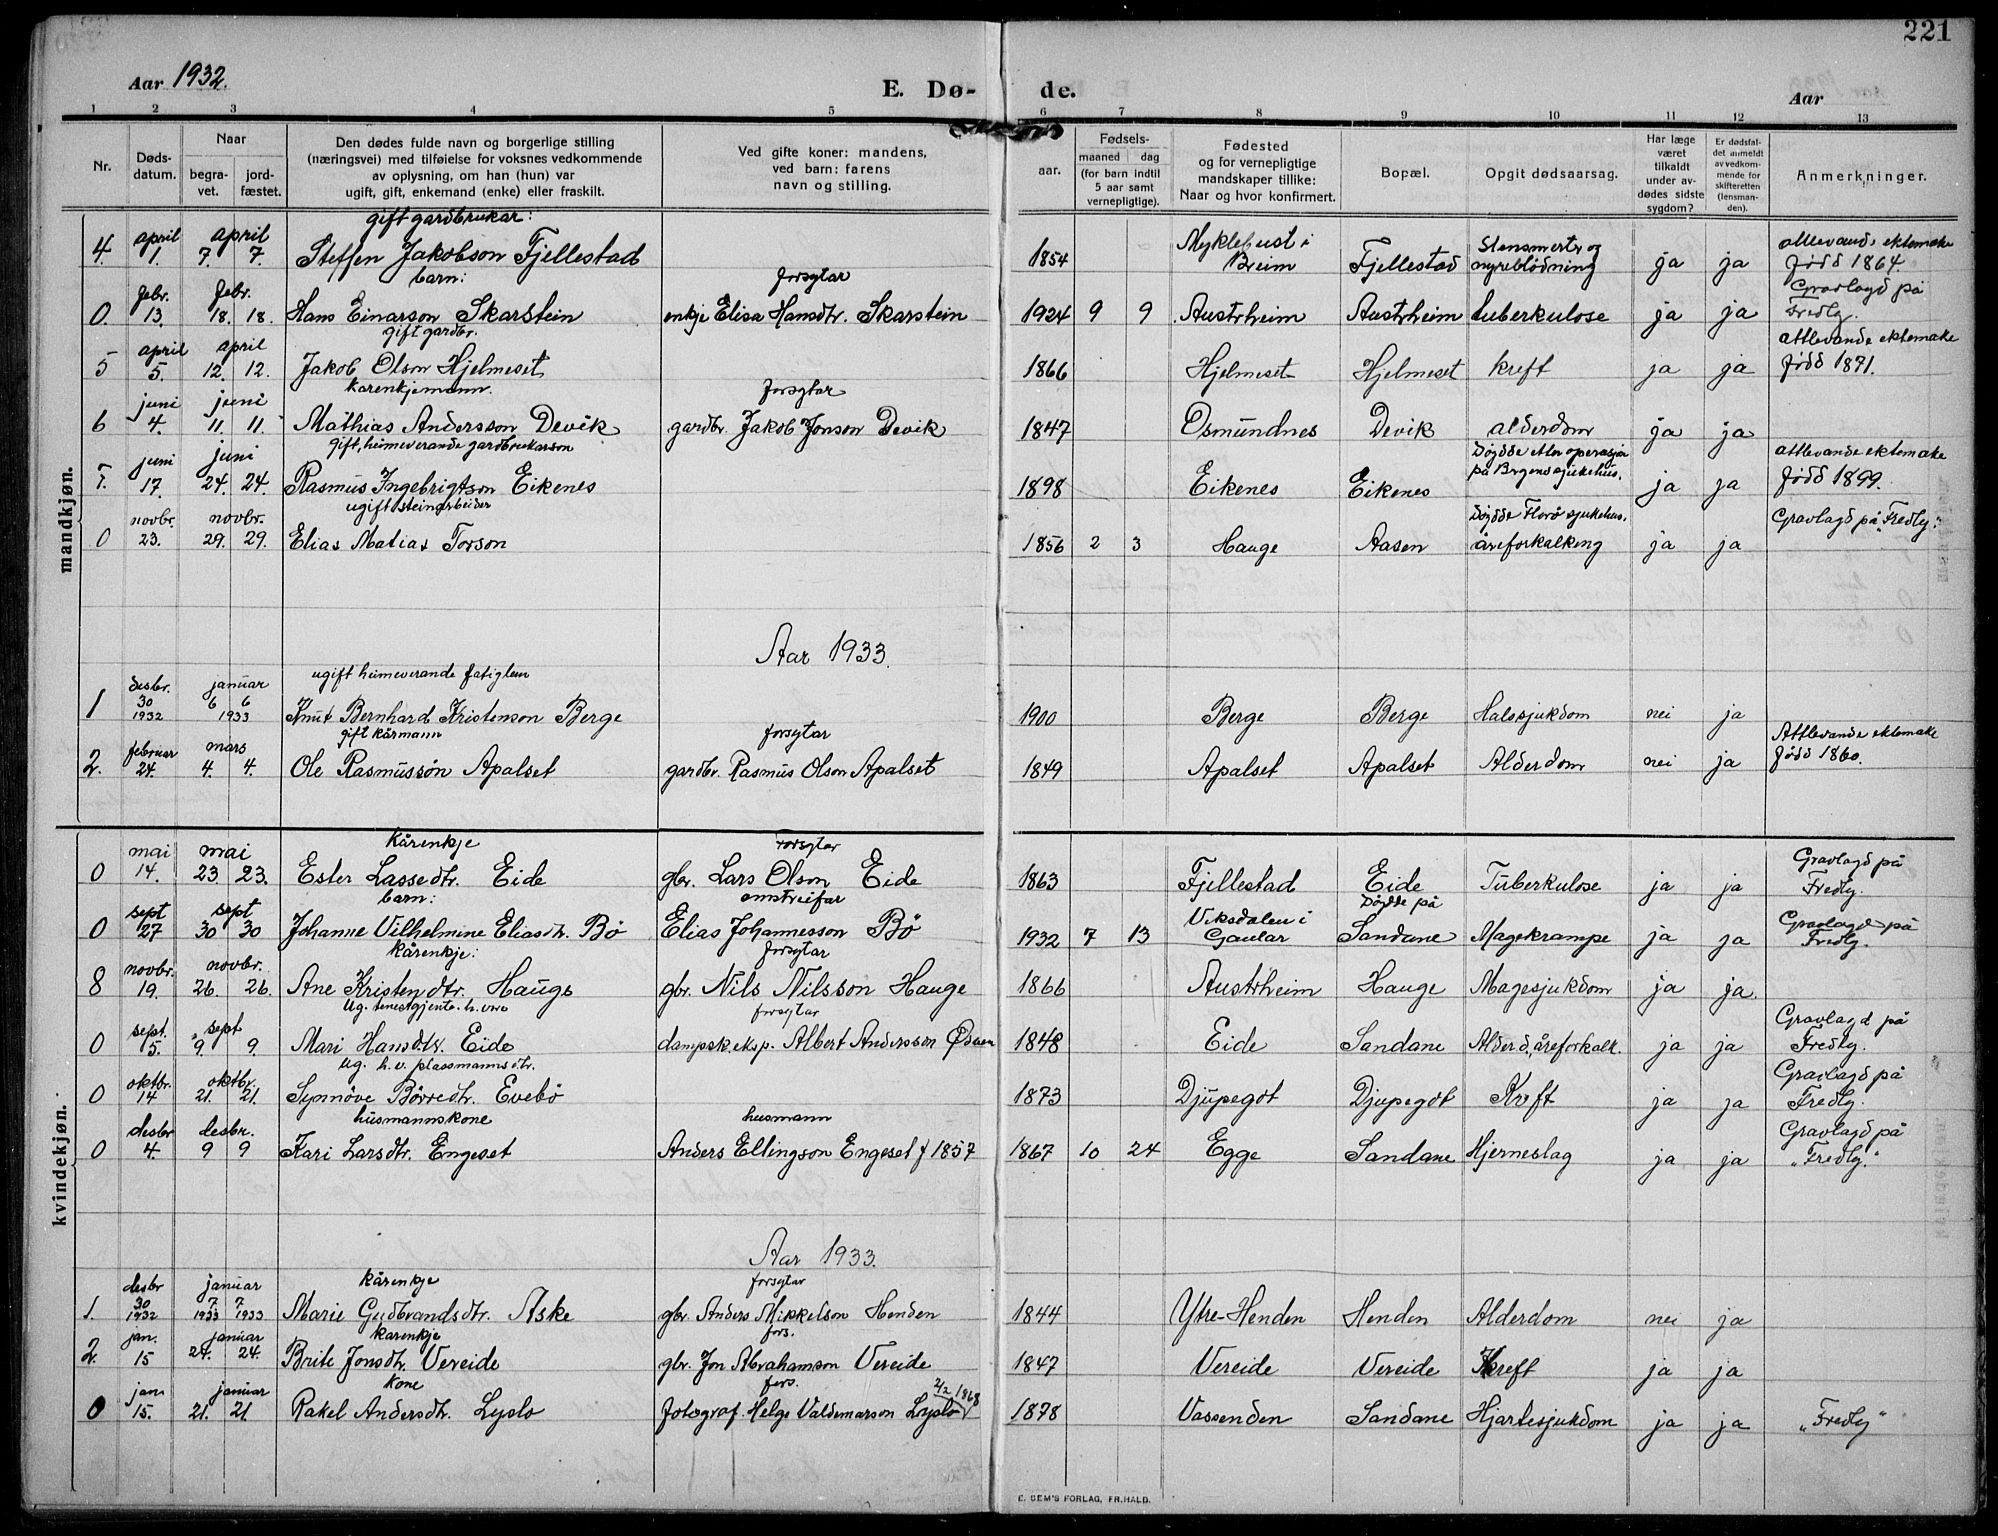 221
Aar 1932.
E. Dø-
de.
Aar
1 2 3 4 5 6 7 8 9 10 11 12 13
Nr.
Døds-
datum.
Naar
begra-
vet.
jord-
fæstet.
Den dødes fulde navn og borgerlige stilling
(næringsvei) med tilføielse for voksnes vedkommende
av oplysning, om han (hun) var
ugift, gift, enkemand (enke) eller fraskilt.
Ved gifte koner: mandens,
ved barn: farens
navn og stilling.
Fødsels-
aar.
maaned dag
(for barn indtil
5 aar samt
vernepligtige).
Fødested
og for vernepligtige
mandskaper tillike:
Naar og hvor konfirmert.
Bopæl.
Opgit dødsaarsag.
Har læge
været
tilkaldt
under av-
dødes sidste
sygdom?
Er dødsfal-
det anmeldt
av vedkom-
mende for
skifteretten
(lensman-
den).
Anmerkninger.
mandkjøn.
gift gardbrukar:
4. april 1. april 7. 7. Steffen Jakobson Fjellestad 1854 Myklebust i Breim Fjellestad nyreblödning ja ja attlevande ektemake fødd 1864.
barn: forsytar
0. febr. 13. febr. 18. 18. Hans Einarson Skarstein enkje Elisa Hansdtr. Skarstein 1924 9 9 Austrheim Austrheim tuberkulose ja ja Gravlagd på Fredly.
gift gardbr.
5 april 5. april 12. 12. Jakob Olson Hjelmeset 1866 Hjelmeset Hjelmeset kreft ja ja attlevande ektemake fødd 1871.
kårenkjemann. forsytar
6 juni 4. juni 11. 11. Mathias Andersson Devik gardbr. Jakob Jonson Devik 1847 Osmundnes Devik alderdom ja ja
gift, heimeverande gardbrukarson
7. juni 17. juni 24. 24. Rasmus Ingebrigtson Eikenes 1898 Eikenes Eikenes Döydde etter operasjon på Bergens sjukehus. ja ja attlevande ektemake fødd 1899.
ugift steinarbeider
0 novbr. 23. novbr. 29. 29. Elias Matias Torson 1856 2 3 Hauge Aasen Döydde Florö sjukehus. åreforkalking ja ja Gravlagd på "Fredly".
Aar 1933.
ugift heimeverande fatiglem
1 desbr. 30 1932 januar 6 6 1933 Knut Bernhard Kristenson Berge 1900 Berge Berge Halssjukdom nei ja
gift kårmann forsytar
2. februar 24. mars 4. 4. Ole Rasmusson Apalset gardbr. Rasmus Olson Apalset 1849 Apalset Apalset Alderdom nei ja Attlevande ektemake fødd 1860.
kvindekjøn.
Kårenkje forsytar
0 mai 14. mai 23. 23. Ester Lassedtr. Eide gbr. Lars Olson Eide 1863 Fjellestad Eide Tuberkulose ja ja Gravlagd på Fredly.
barn: omstreifar
0 sept 27 sept 30 30 Johanne Vilhelmine Eliasdtr. Bö Elias Johannesson Bö 1932 7 13 Viksdalen i Gaular Döydde på Sandane Magekrampe ja ja Gravlagd på Fredly.
Kårenkje: forsytar
8 novbr. 19. novbr. 26. 26. Ane Kristendtr. Hauge gbr. Nils Nilsson Hauge 1866 Austrheim Hauge Magesjukdom ja ja.
ug. tenestgjente. h. vere forsytar
0 sept. 5. sept 9. 9. Mari Hansdtr. Eide dampsk.eksp. Albert Andersson 1848 Eide Sandane Alderd., åreforkalk. ja ja Gravlagd på Fredly.
Ug. h. v. plassmannsdtr.
0 oktbr. 14 oktbr. 21. 21. Synnöve Börredtr. Evebö 1873 Djupegot Djupegot Kreft ja ja Gravlagd på Fredly.
husmannskone husmann
0 desbr 4. desbr. 9 9 Kari Larsdtr. Engeset Anders Ellingson Engeset f 1857 1867 10 24 Egge Sandane Hjerneslag ja ja Gravlagd på "Fredly."
Aar 1933.
kårenkje forsytar
1. desbr 30 1932 januar 7. 7 1933 1933 Marie Gudbrandsdtr. Aske gbr. Anders Mikkelson Henden 1844 Ytre-Henden Henden Alderdom nei ja
kårenkje fors.
2. jan. 15 januar 24. 24. Brite Jonsdtr. Vereide gbr. Jon Abrahamson Vereide 1847 Vereide Vereide Kreft ja ja
kone fors.
0 jan. 15. januar 21. 21. Rakel Andersdtr. Lyslo fotograf. Helge Valdemarson Lyslo 2/2 1868 1878 Vassenden Sandane Hjartesjukdom ja ja "Fredly"
E. SEM'S FORLAG, FR.HALD.